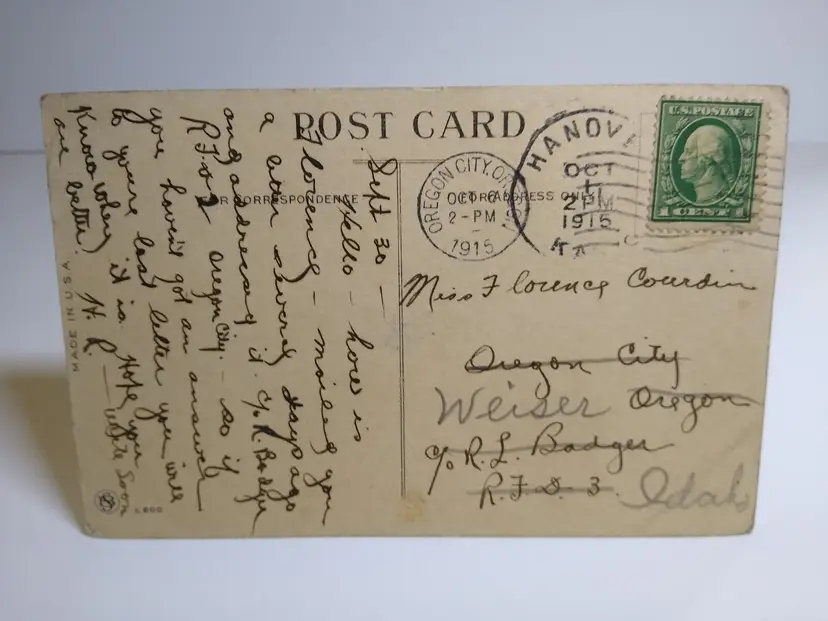 POST CARD
FOR CORRESPONDENCE
FOR ADDRESS ONLY
U.S. POSTAGE
1 CENT 1
HANOV
OCT
1
2 PM
1915
OREGON CITY, OR
OCT 6
2-PM
1915
Sept 30 —
Hello — how is
Florence — mailed you
a letter several days ago
and addressed it c/o R. Badger
R.F.D. 2 Oregon City. — so if
you haven't got an answer
to you're last letter you will
Know where it is. Hope you
are better. H. R. — write Soon
Miss Florence Courdin
Oregon City
Weiser Oregon
c/o R. L. Badger
R.F.D. 3. Idaho
MADE IN U.S.A.